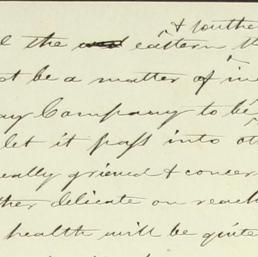 & southe
l the eastern th
t be a matter of in
ay Company to be
let it pass into ot
eally grieved & concer
ther delicate on reach
health will be quite